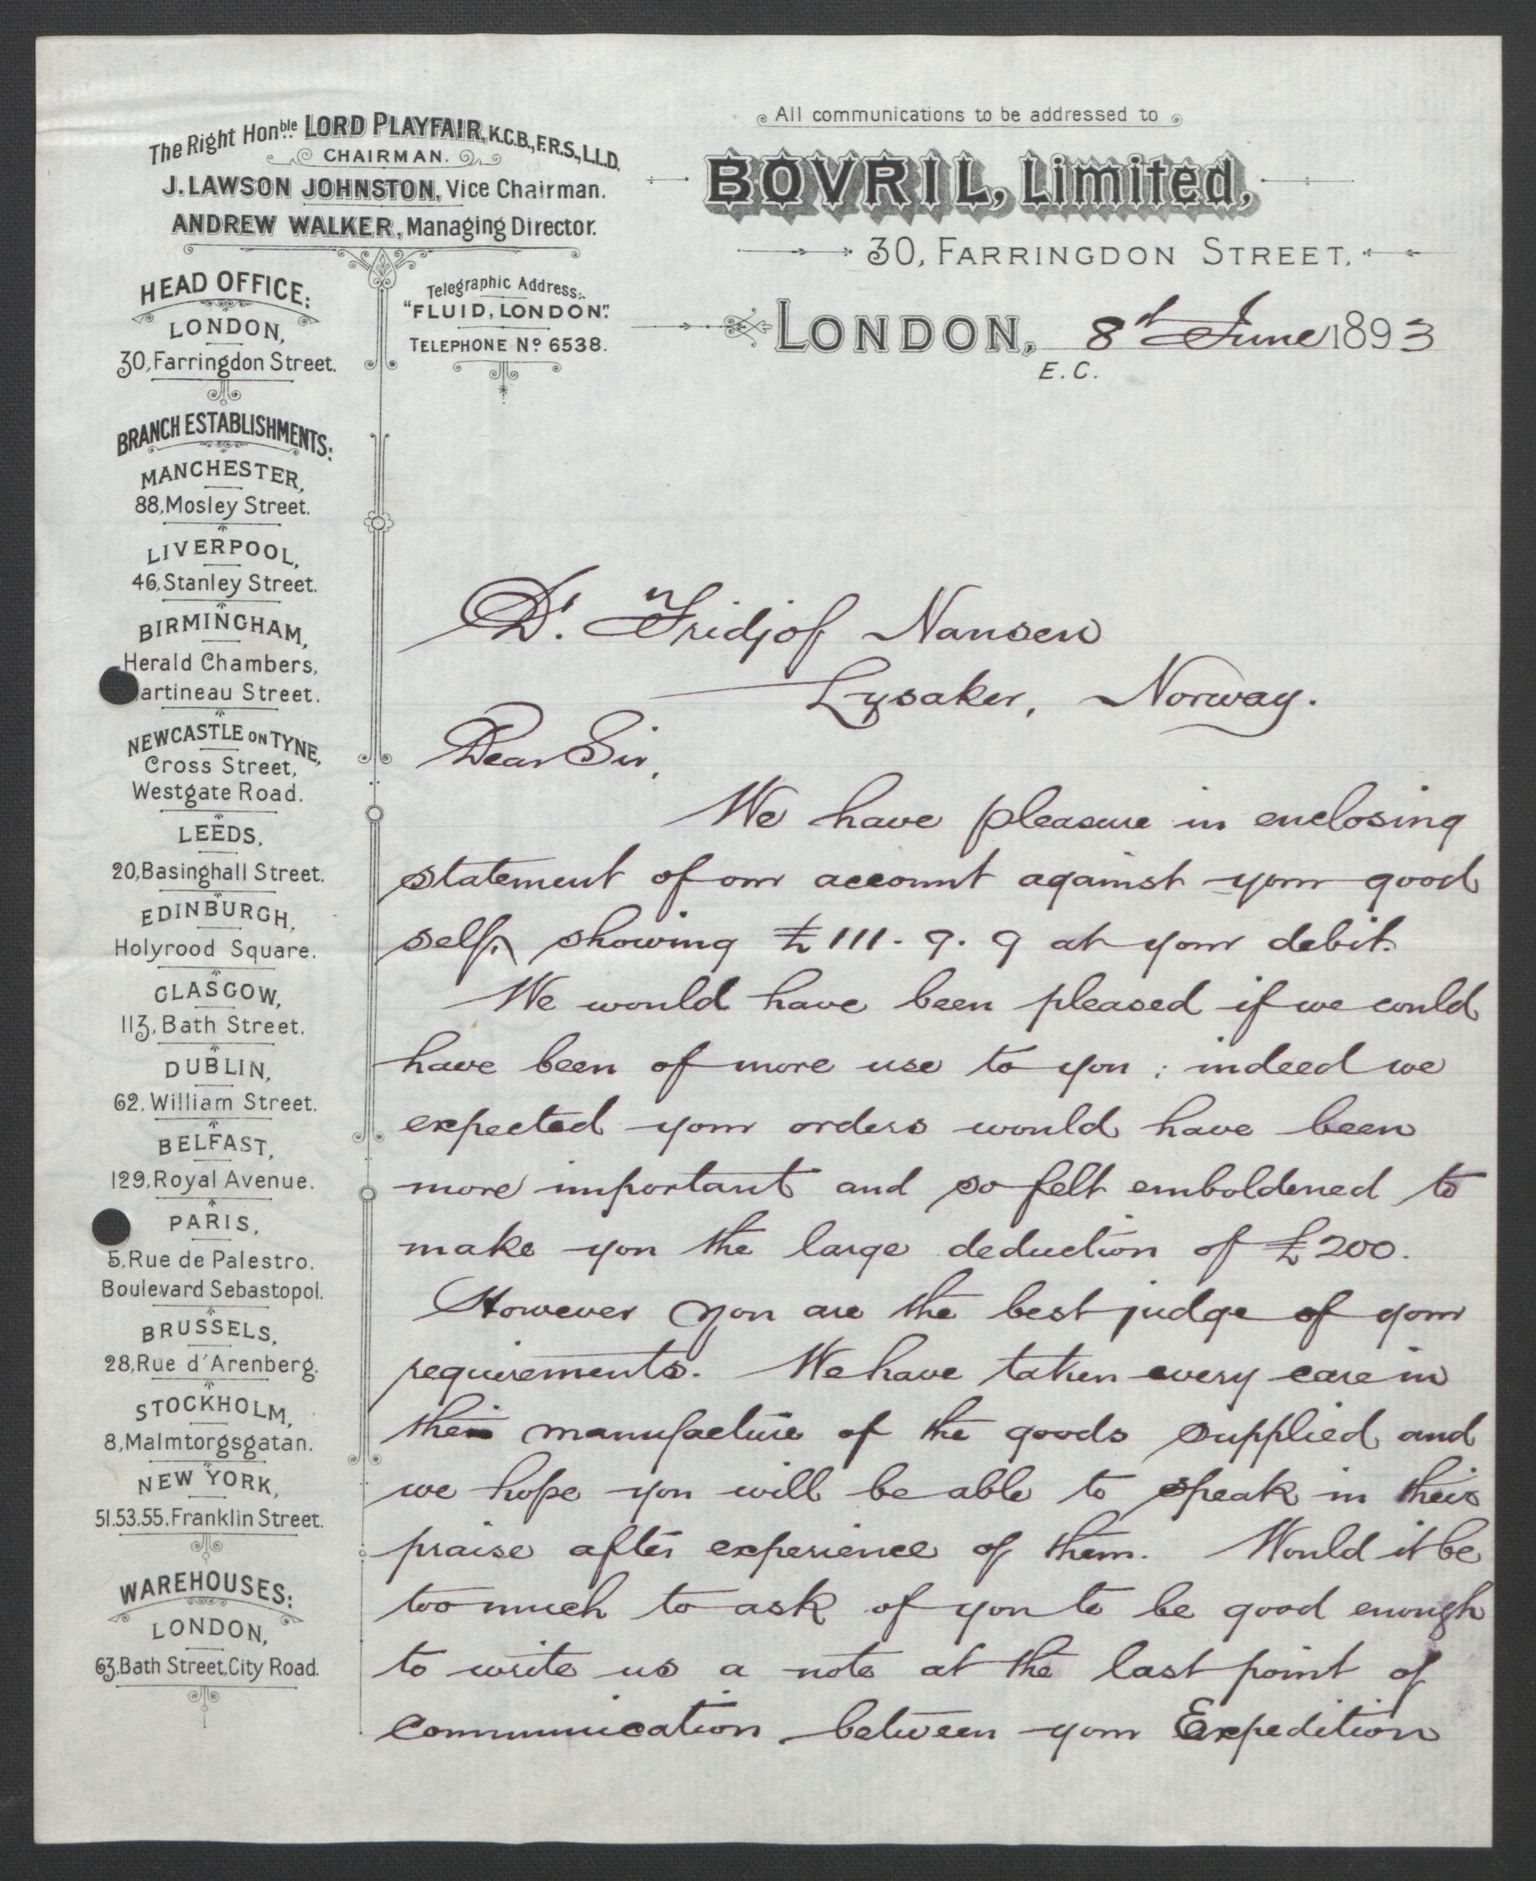 The Right Honble. LORD PLAYFAIR, K.C.B., F.R.S., L.L.D.
CHAIRMAN.
J. LAWSON JOHNSTON, Vice Chairman.
ANDREW WALKER, Managing Director.
HEAD OFFICE:
LONDON,
30, Farringdon Street.
Telegraphic Address:-
"FLUID, LONDON".
TELEPHONE No. 6538.
BRANCH ESTABLISHMENTS:
MANCHESTER,
88, Mosley Street.
LIVERPOOL,
46, Stanley Street.
BIRMINGHAM,
Herald Chambers,
artineau Street.
NEWCASTLE ON TYNE,
Cross Street,
Westgate Road.
LEEDS,
20, Basinghall Street.
EDINBURGH,
Holyrood Square.
GLASGOW,
113, Bath Street.
DUBLIN,
62. William Street.
BELFAST,
129, Royal Avenue.
PARIS,
5, Rue de Palestro.
Boulevard Sebastopol.
BRUSSELS,
28, Rue d'Arenberg.
STOCKHOLM,
8, Malmtorgsgatan.
NEW YORK,
51. 53. 55. Franklin Street.
WAREHOUSES:
LONDON,
63, Bath Street, City Road.
All communications to be addressed to
BOVRIL, Limited,
30, FARRINGDON STREET,
LONDON, 8th June 1893
E.C.
Dr. Fridjof Nansen
Lysaker, Norway.
Dear Sir,
We have pleasure in enclosing
statement of our account against your good
self, showing £111. 9. 9 at your debit.
We would have been pleased if we could
have been of more use to you; indeed we
expected your orders would have been
more important and so felt emboldened to
make you the large deduction of £200.
However you are the best judge of your
requirements. We have taken every care in
the manufacture of the goods supplied and
we hope you will be able to speak in their
praise after experience of them. Would it be
too much to ask of you to be good enough
to write us a note at the last point of
communication between your Expedition